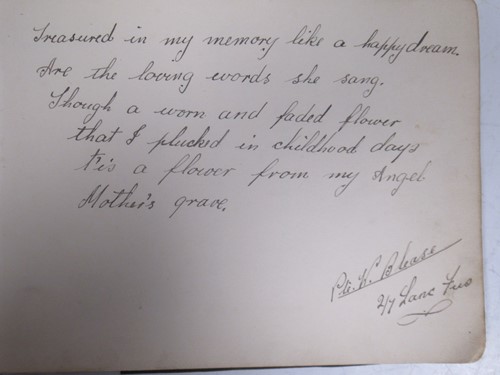 Treasured in my memory like a happy dream.
Are the loving words she sang.
Though a worn and faded flower
that I plucked in childhood days
t'is a flower from my Angel
Mother's grave.
Pte. W. Blease
2/7 Lanc Fus